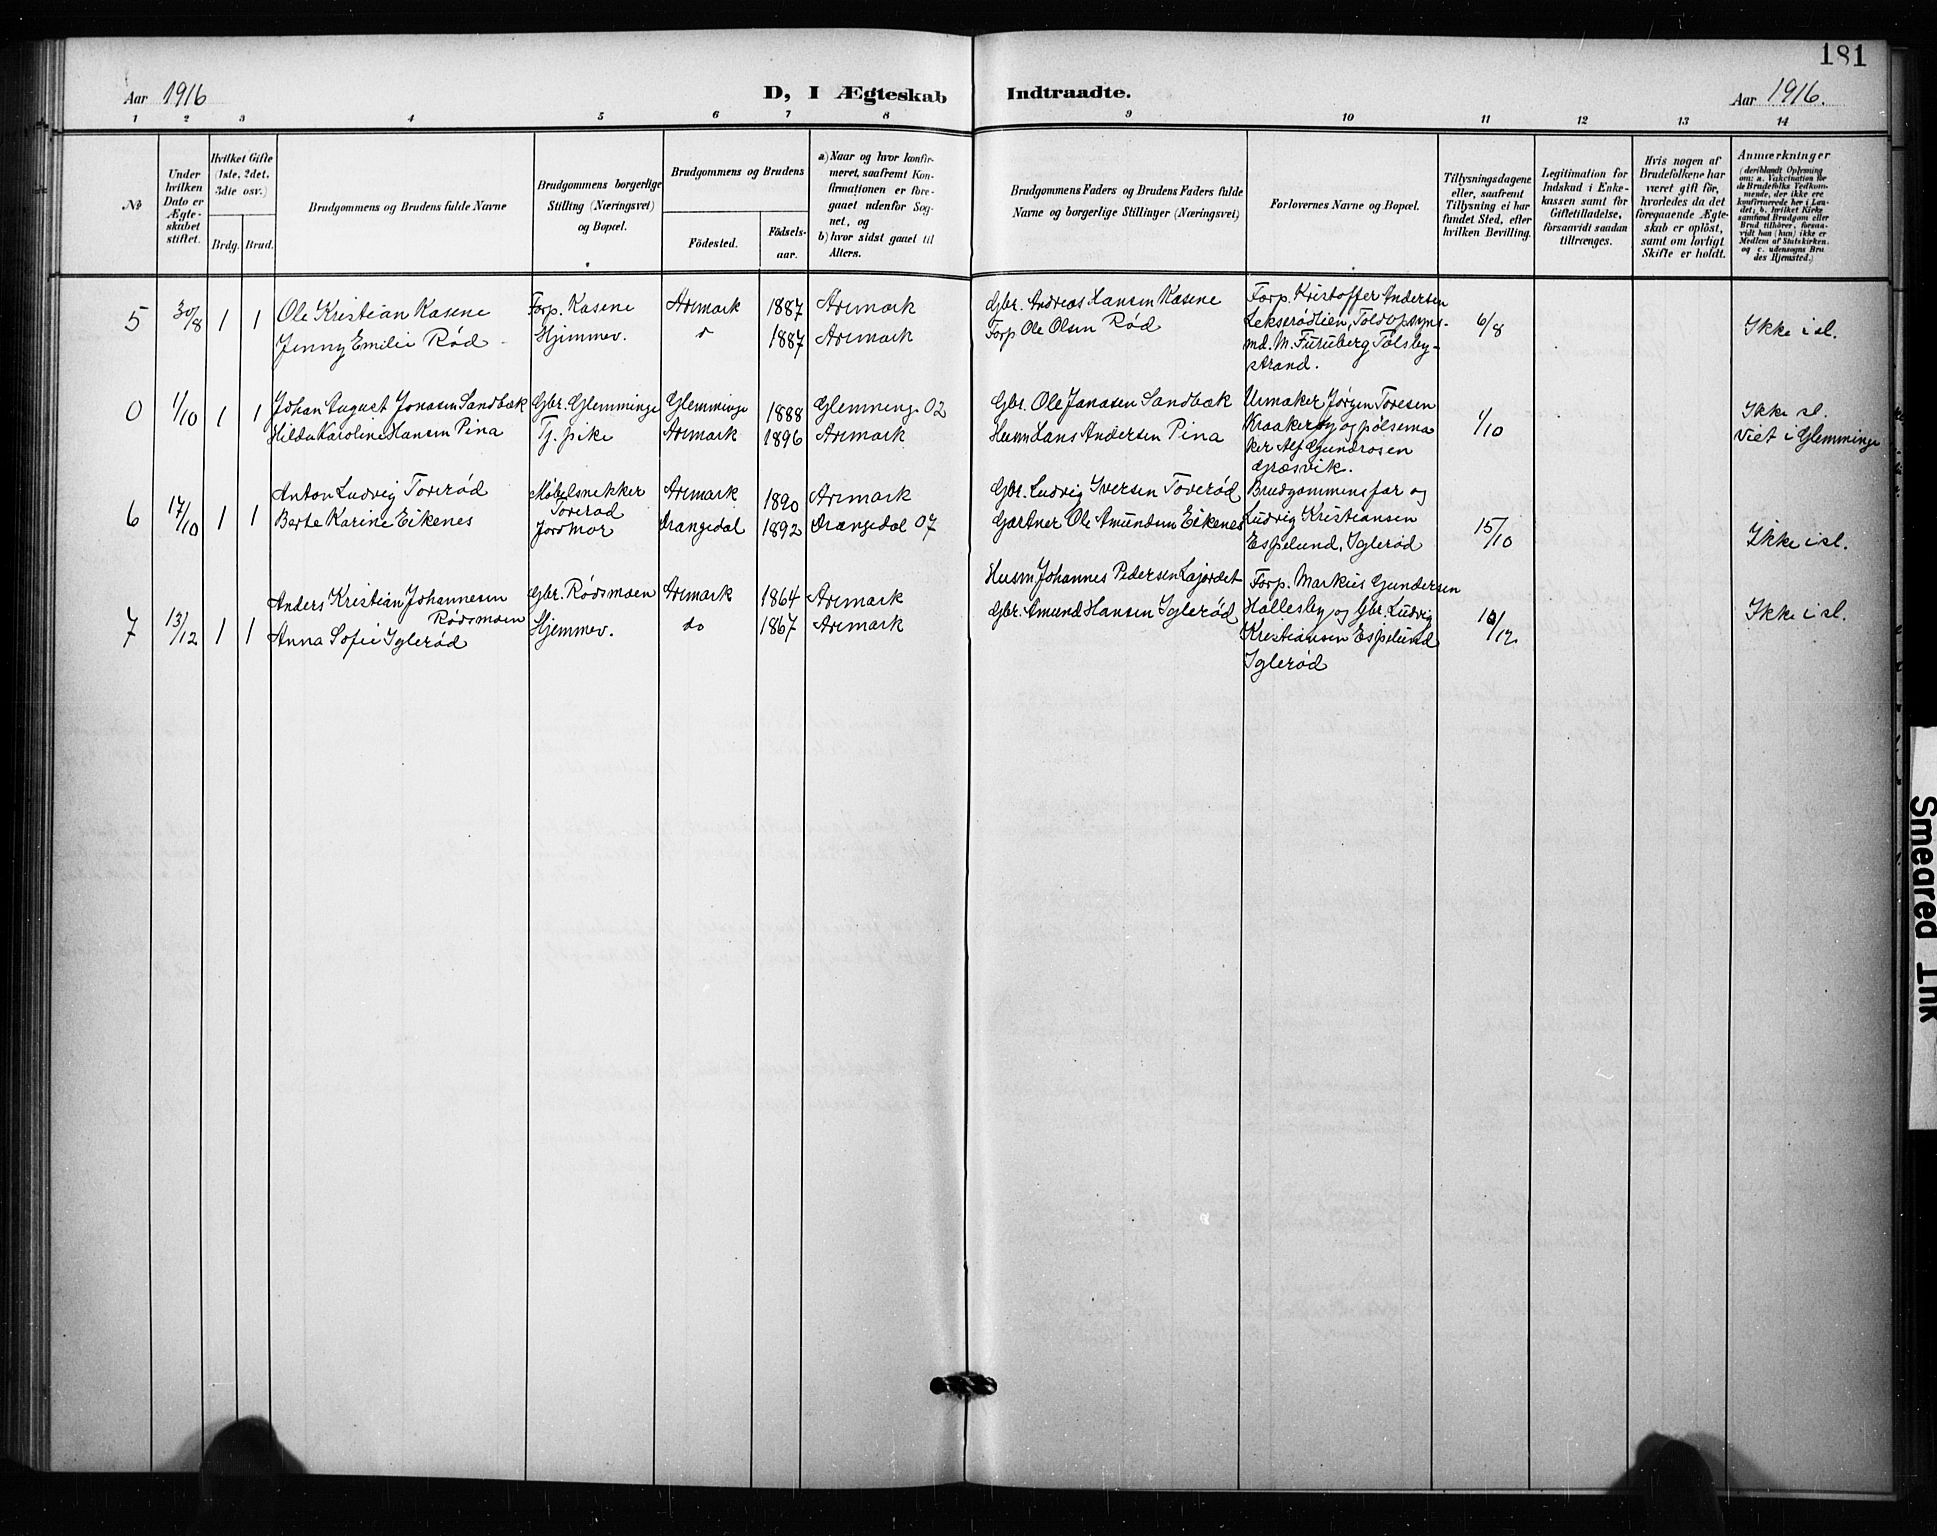 181
Aar 1916
D, I Ægteskab Indtraadte.
Aar 1916.
1 2 3 4 5 6 7 8 9 10 11 12 13 14
No
Under hvilken Dato er Ægte-skabet stiftet.
Hvilket Gifte (1ste, 2det, 3die osv.)
Brdg. Brud.
Brudgommens og Brudens fulde Navne
Brudgommens borgerlige Stilling (Næringsvei) og Bopæl.
Brudgommens og Brudens
Födested.
Födsels-aar.
a) Naar og hvor konfir-meret, saafremt Kon-firmationen er fore-gaaet udenfor Sog-net, og
b) hvor sidst gaaet til Alters.
Brudgommens Faders og Brudens Faders fulde Navne og borgerlige Stillinger (Næringsvei)
Forlovernes Navne og Bopæl.
Tillysningsdagene eller, saafremt Tillysning ei har fundet Sted, efter hvilken Bevilling.
Legitimation for Indskud i Enke-kassen samt for Giftetilladelse, forsaavidt saadan tiltrænges.
Hvis nogen af Brudefolkene har været gift för, hvorledes da det foregaaende Ægte-skab er oplöst, samt om lovligt Skifte er holdt.
Anmærkninger (deriblandt Oplysning om: a. Vakcination for de Brudefolks Vedkom-mende, der ikke ere konfirmerede her i Lan-det; b. hvilket Kirke samfund Brudgom eller Brud tilhörer, forsaa-vidt han (hun) ikke er Medlem af Statskirken. og c. udensogns Bru des Hjemsted.)
5 30/8 1 1 Ole Kristian Kasene Forp. Kasene Aremark 1887 Aremark Gbr. Andreas Hansen Kasene Forp. Kristoffer Andersen
Jenny Emilie Rød Hjemmev. 1887 Aremark Forp Ole Olsen Rød Lekserødlien, Toldopsyns- 6/8 Ikke i sl.
md. M. Furuberg Tølsby-
strand.
0 1/10 1 1 Johan August Jonasen Sandbæk Gbr. Glemminge Glemminge 1888 Glemminge 02 Gbr. Ole Jonasen Sandbæk Urmaker Jørgen Toresen Ikke sl.
Hilda Karoline Hansen Pina Tj. pike Aremark 1896 Aremark Husm Hans Andersen Pina Kraakerøy og pølsema 1/10 Viet i Glemminge
ker Alf Gundrosen
Græsvik.
6 17/10 1 1 Anton Ludvig Torerød Møbelsnekker Torerød Aremark 1890 Aremark Gbr. Ludvig Iversen Torerød Brudgommens far og
Berte Karine Eikenes Jordmor Drangedal 1892 Drangedal 07 Gartner Ole Amundsen Eikenes Ludvig Kristiansen 15/10 Ikke i sl.
Espelund, Iglerød
7 13/12 1 1 Anders Kristian Johannesen Rødsmoen Gbr. Rødsmoen Aremark 1864 Aremark Husm Johannes Pedersen Lajordet Forp. Markus Gundersen
Anna Sofie Iglerød Hjemmev. do 1867 Aremark Gbr. Amund Hansen Iglerød Hallesby og Gbr. Ludvig Ikke i sl.
Kristiansen Espelund
Iglerød
Smeared Ink